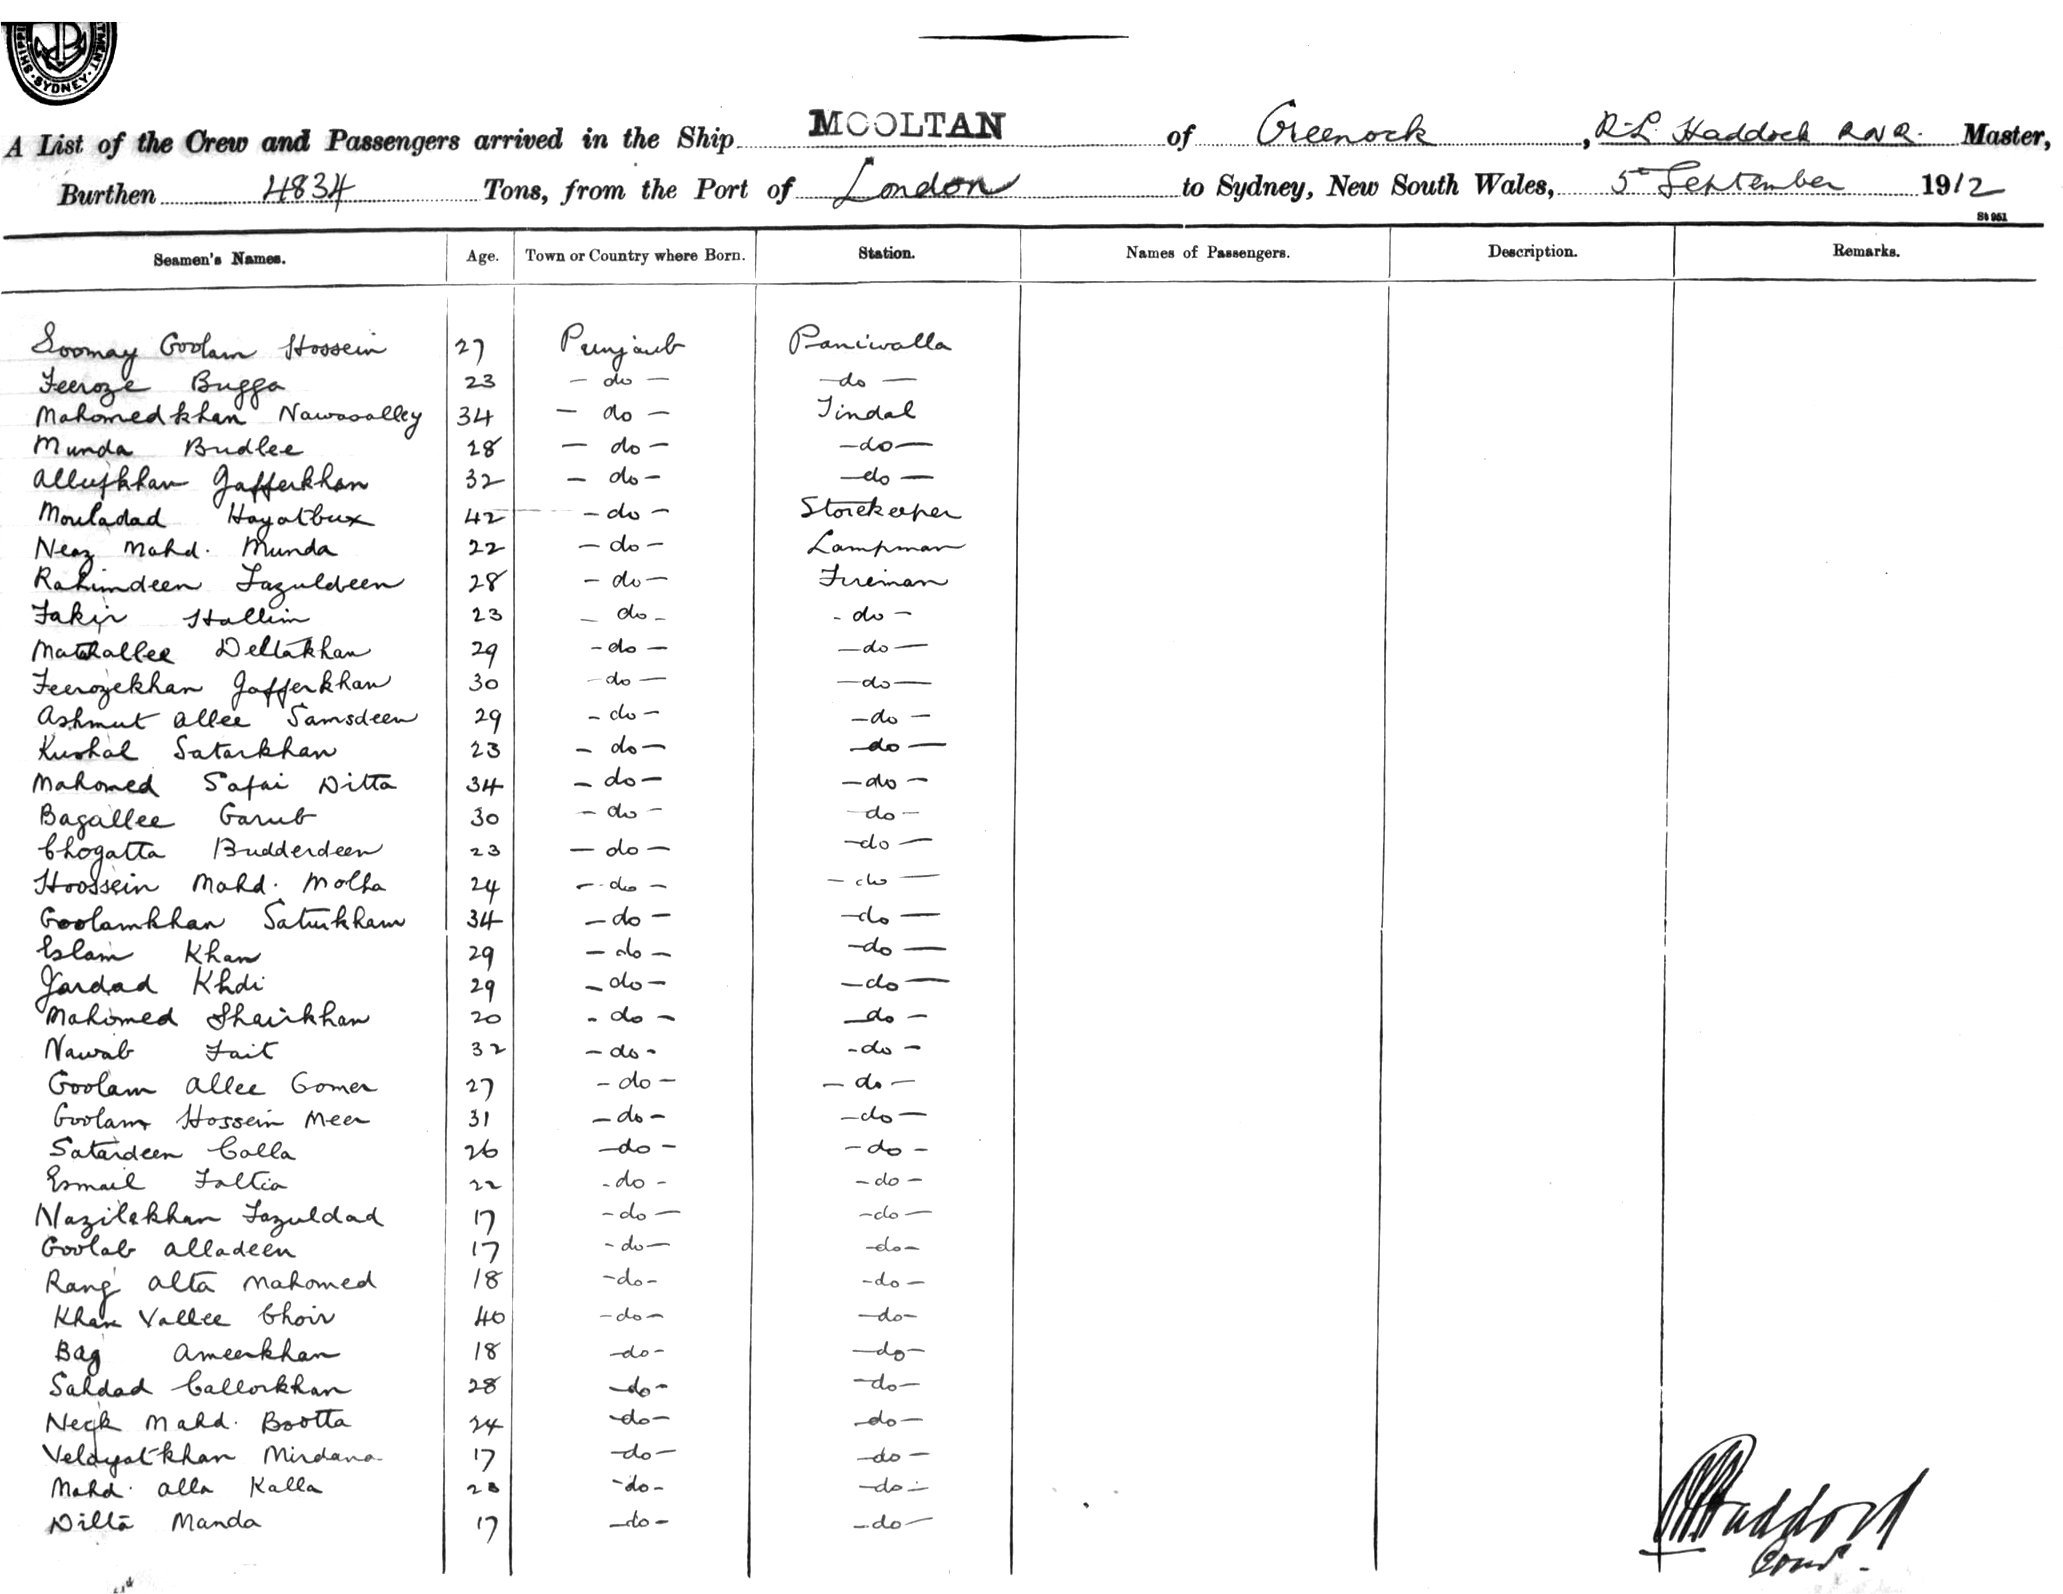 SYDNEY
A List of the Crew and Passengers arrived in the Ship MOOLTAN of Greenock, R. L. Haddock RNR. Master,
Burthen 4834 Tons, from the Port of London to Sydney, New South Wales, 5th September 1912
St 951
Seamen's Names. Age. Town or Country where Born. Station. Names of Passengers. Description. Remarks.
Soomay Goolam Hossein 27 Punjaub Paniwalla
Feeroze Bugga 23 - do - - do -
Mahomedkhan Nawasalley 34 - do - Tindal
Munda Budlee 28 - do - - do -
Allufkhan Gafferkhan 32 - do - - do -
Mouladad Hayatbux 42 - do - Storekeeper
Neaz Mahd. Munda 22 - do - Lampman
Rahimdeen Fazuldeen 28 - do - Fireman
Fakir Hallim 23 - do - - do -
Dellakhan 29 - do - - do -
Feerozekhan Gafferkhan 30 - do - - do -
Ashmut Allee Samsdeen 29 - do - - do -
Kushal Satarkhan 23 - do - - do -
Mahomed Safai Ditta 34 - do - - do -
Bagallee Garub 30 - do - - do -
Chogatta Budderdeen 23 - do - - do -
Hoossein Mahd. Molha 24 - do - - do -
Goolamkhan Saturkham 34 - do - - do -
Eslam Khan 29 - do - - do -
Jardad Khdi 29 - do - - do -
Mahomed Shairkhan 20 - do - - do -
Nawab Fait 32 - do - - do -
Goolam Allee Gomer 27 - do - - do -
Goolam Hossein Meer 31 - do - - do -
Satardeen Calla 26 - do - - do -
Esmail Faltia 22 - do - - do -
Nazilekhan Fazuldad 17 - do - - do -
Goolab Alladeen 17 - do - - do -
Rang Alta Mahomed 18 - do - - do -
Khan Vallee Choir 40 - do - - do -
Bag Ameerkhan 18 - do - - do -
Sahdad Callorkhan 28 - do - - do -
Neck Mahd. Bootta 24 - do - - do -
Velayatkhan Mirdana 17 - do - - do -
Mahd. Alla Kalla 23 - do - - do -
Ditta Manda 17 - do - - do -
Haddock